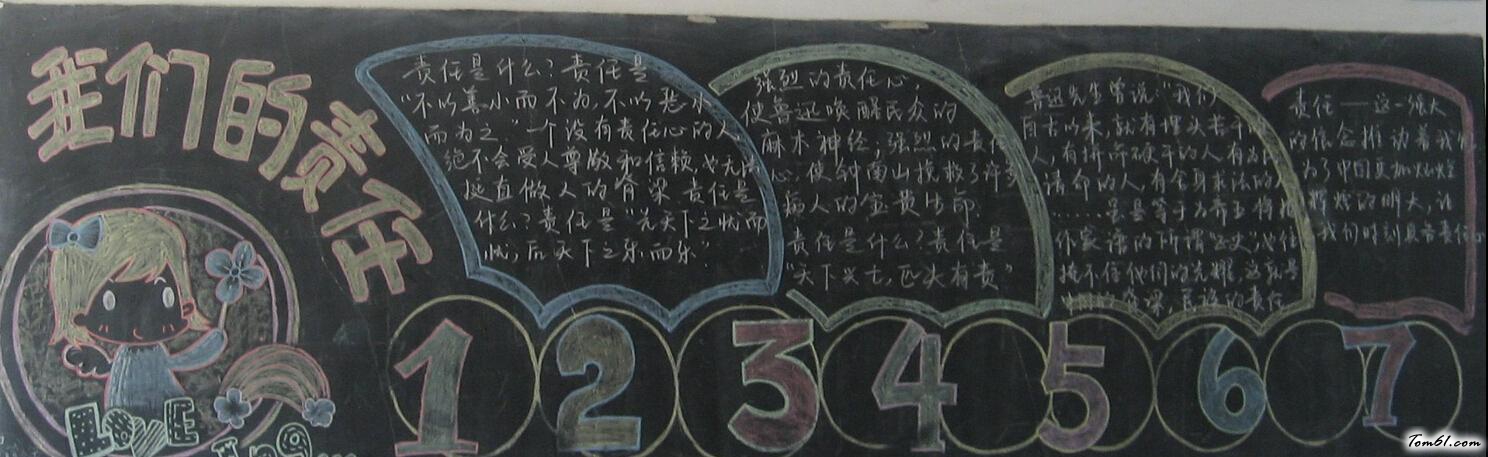 我们的责任
责任是什么？责任是
“不以善小而不为，不以恶小
而为之”一个没有责任心的人，
绝不会受人尊敬和信赖，也无法
挺直做人的脊梁。责任是
什么？责任是“先天下之忧而
忧，后天下之乐而乐”。
强烈的责任心，
使鲁迅唤醒民众的
麻木神经；强烈的责任
心，使钟南山挽救了许多
病人的宝贵生命
责任是什么？责任是
“天下兴亡，匹夫有责”
鲁迅先生曾说：“我们
自古以来，就有埋头苦干的
人，有拼命硬干的人有为民
请命的人，有舍身求法的人
……虽是等于为帝王将相
作家谱的所谓“正史”，也往
掩不住他们的光耀，这就是
的脊梁，
责任——这一强大
的信念推动着我们，
为了中国更加灿烂
辉煌的明天，让
我们时刻具备责任心
LOVE
ing...
1 2 3 4 5 6 7
Tom61.com